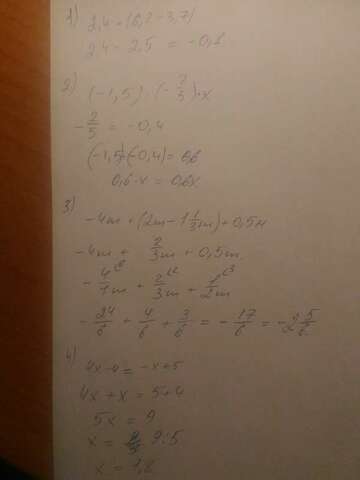 1) 2,4 - (6,2 - 3,7)
2,4 - 2,5 = -0,1
2) (-1,5) · (-2/5) · x
-2/5 = -0,4
(-1,5)·(-0,4) = 0,6
0,6·x = 0,6x
3) -4m + (2m - 1 1/3m) + 0,5m
-4m + 2/3m + 0,5m
-4/1m + 2/3m + 1/2m
-24/6 + 4/6 + 3/6 = -17/6 = -2 5/6
4) 4x - 4 = -x + 5
4x + x = 5 + 4
5x = 9
x = 9:5
x = 1,8